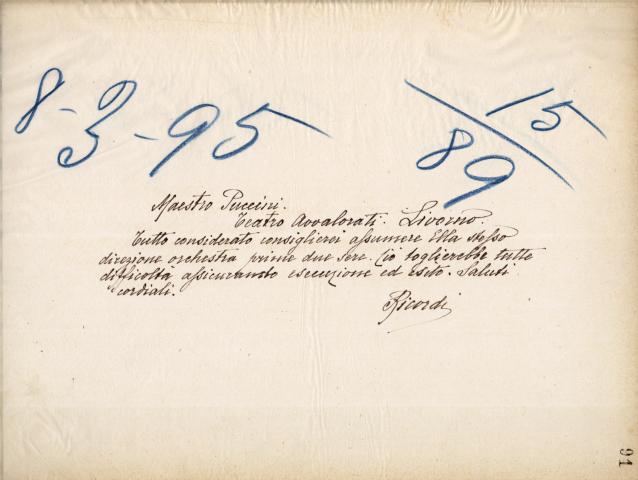 8-3-95
15
89
Maestro Puccini.
Teatro Avvalorati. Livorno.
Tutto considerato consiglierei assumere Ella stesso
direzione orchestra prime due sere. Ciò toglierebbe tutte
difficoltà assicurando esecuzione ed esito. Saluti
cordiali.
Ricordi
91